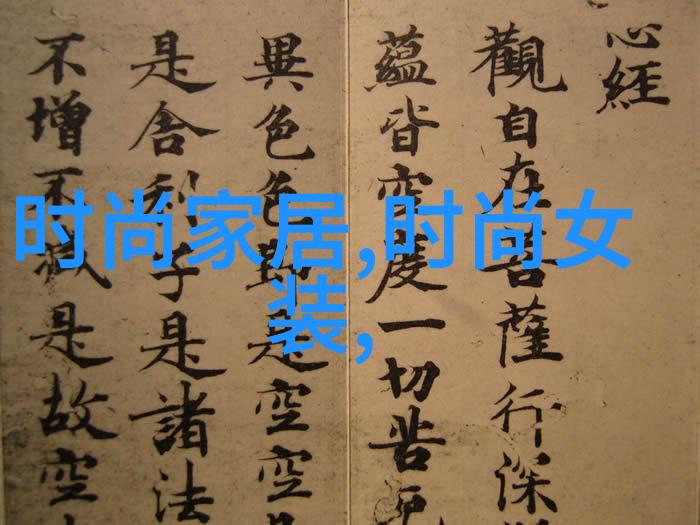 心經
觀自在菩薩行深
蘊皆空度一切苦厄
異色色即是空空
是舍利子是諸法
不增不減是故空
时尚家居,时尚女
装,